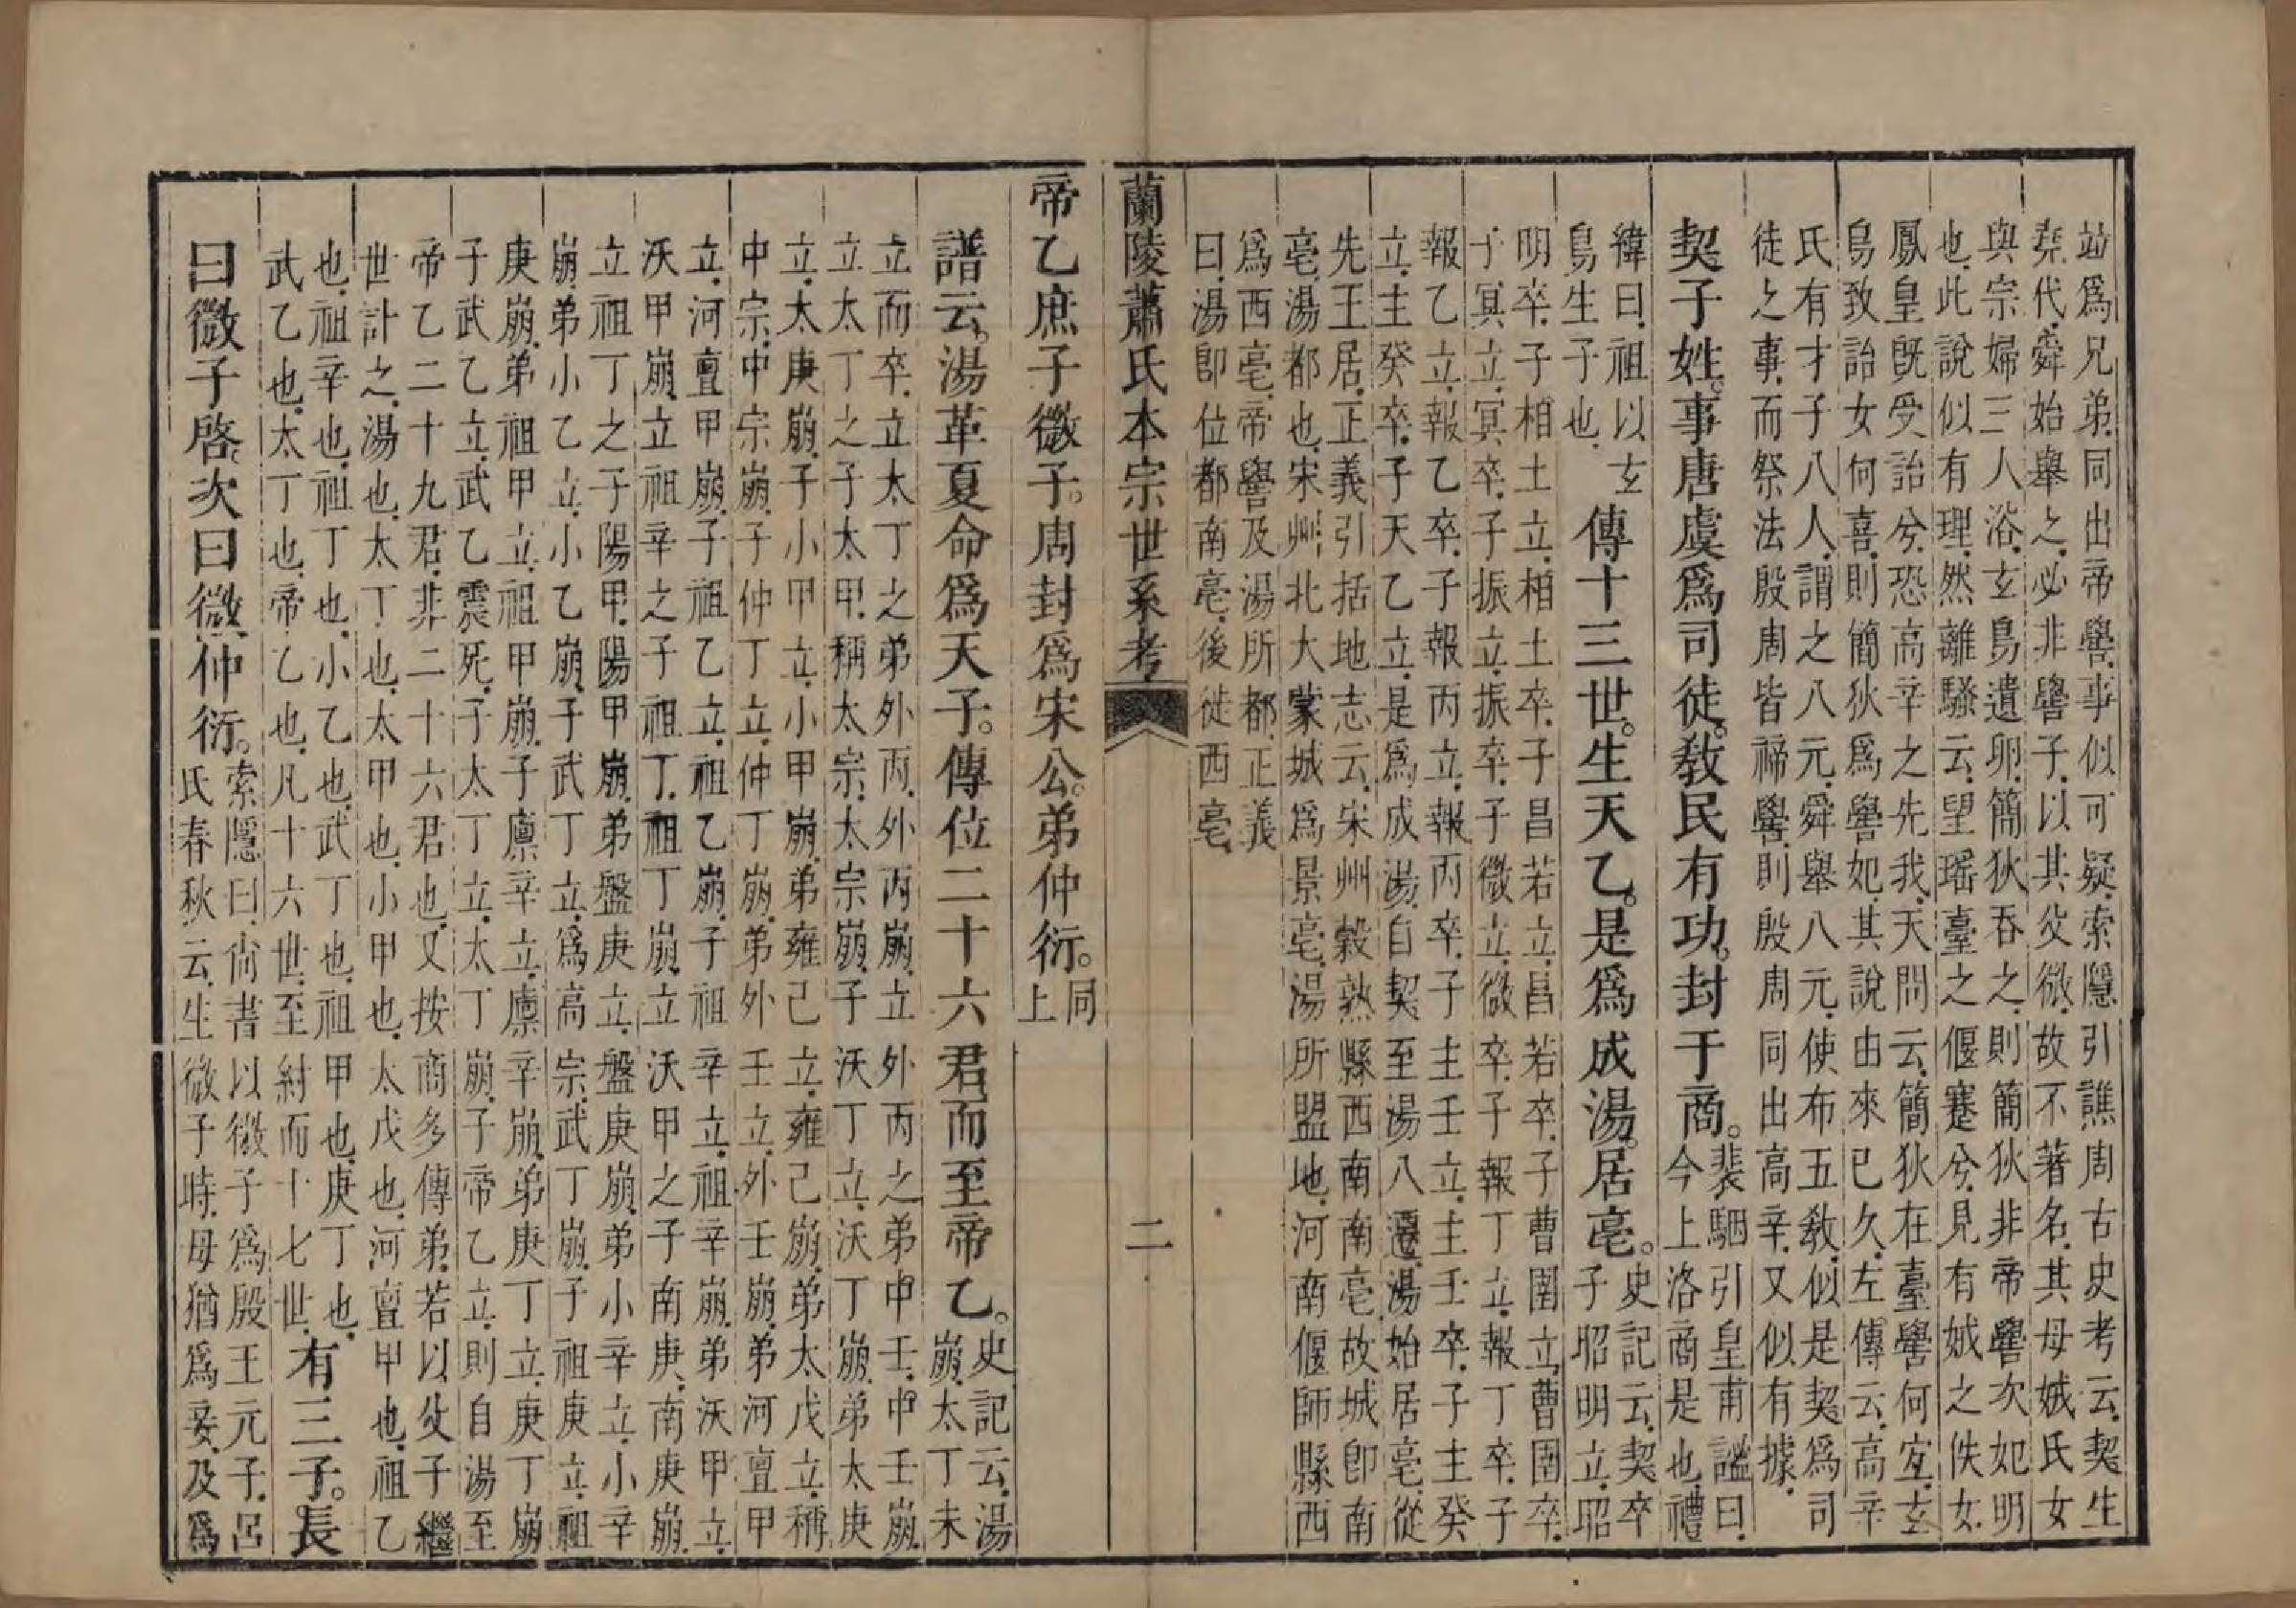 竝爲兄弟同出帝嚳事似可疑索隱引譙周古史考云契生
堯代舜始舉之必非嚳子以其父微故不著名其母娀氏女
與宗婦三人浴玄鳥遺卵簡狄吞之則簡狄非帝嚳次妃明
也此說似有理然離騷云望瑤臺之偃蹇兮見有娀之佚女
鳳皇旣受詒兮恐高辛之先我天問云簡狄在臺嚳何宜玄
鳥致詒女何喜則簡狄爲嚳妃其說由來已久左傳云高辛
氏有才子八人謂之八元舜舉八元使布五敎似是契爲司
徒之事而祭法殷周皆禘嚳則殷周同出高辛又似有據
契子姓。事唐虞爲司徒。敎民有功。封于商。
裴駰引皇甫謐曰
今上洛商是也禮
緯曰祖以玄
鳥生子也
傳十三世。生天乙。是爲成湯。居亳。
史記云契卒
子昭明立昭
明卒子相土立相土卒子昌若立昌若卒子曹圉立曹圉卒
子冥立冥卒子振立振卒子微立微卒子報丁立報丁卒子
報乙立報乙卒子報丙立報丙卒子主壬立主壬卒子主癸
立主癸卒子天乙立是爲成湯自契至湯八遷湯始居亳從
先王居正義引括地志云宋州穀熟縣西南南亳故城卽南
亳湯都也宋州北大蒙城爲景亳湯所盟地河南偃師縣西
爲西亳帝嚳及湯所都正義
曰湯卽位都南亳後徙西亳
蘭陵蕭氏本宗世系考
二
帝乙庶子微子。周封爲宋公。弟仲衍。
同
上
譜云。湯革夏命爲天子。傳位二十六君而至帝乙。
史記云湯
崩太丁未
立而卒立太丁之弟外丙外丙崩立外丙之弟中壬中壬崩
立太丁之子太甲稱太宗太宗崩子沃丁立沃丁崩弟太庚
立太庚崩子小甲立小甲崩弟雍己立雍己崩弟太戊立稱
中宗中宗崩子仲丁立仲丁崩弟外壬立外壬崩弟河亶甲
立河亶甲崩子祖乙立祖乙崩子祖辛立祖辛崩弟沃甲立
沃甲崩立祖辛之子祖丁祖丁崩立沃甲之子南庚南庚崩
立祖丁之子陽甲陽甲崩弟盤庚立盤庚崩弟小辛立小辛
崩弟小乙立小乙崩子武丁立爲高宗武丁崩子祖庚立祖
庚崩弟祖甲立祖甲崩子廩辛立廩辛崩弟庚丁立庚丁崩
子武乙立武乙震死子太丁立太丁崩子帝乙立則自湯至
帝乙二十九君非二十六君也又按商多傳弟若以父子繼
世計之湯也太丁也太甲也小甲也太戊也河亶甲也祖乙
也祖辛也祖丁也小乙也武丁也祖甲也庚丁也
武乙也太丁也帝乙也凡十六世至紂而十七世
有三子。長
曰微子啓。次曰微仲衍。
索隱曰尙書以微子爲殷王元子呂
氏春秋云生微子時母猶爲妾及爲